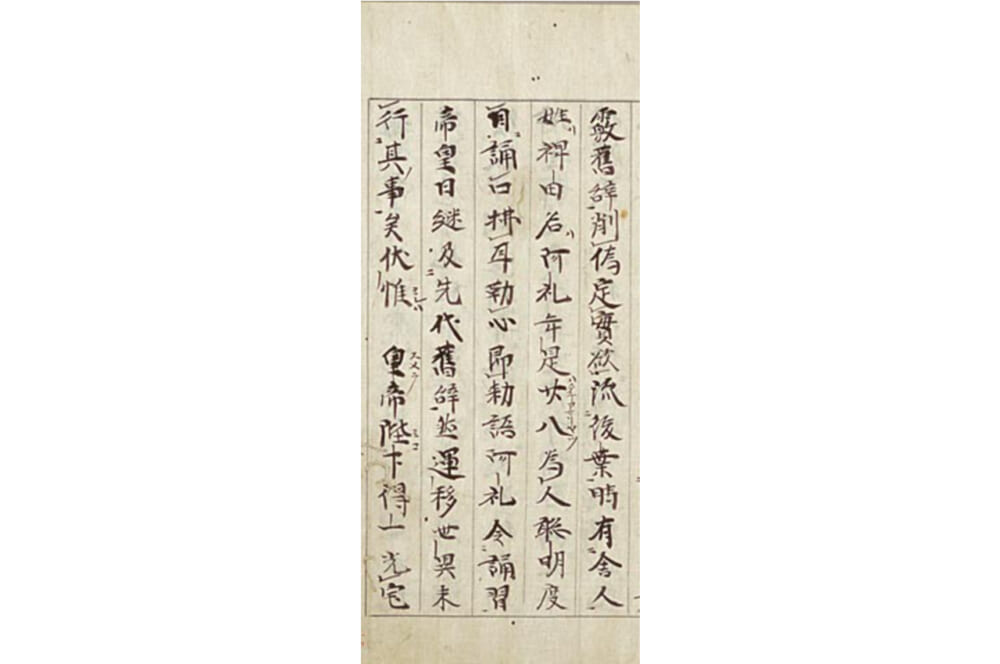 覈舊辞削偽定實欲流後葉時有舍人
姓稗田名阿礼年是廿八為人聡明度
目誦口拂耳勒心即勅語阿礼令誦習
帝皇日継及先代舊辞然運移世異未
行其事矣伏惟　皇帝陛下得一光宅